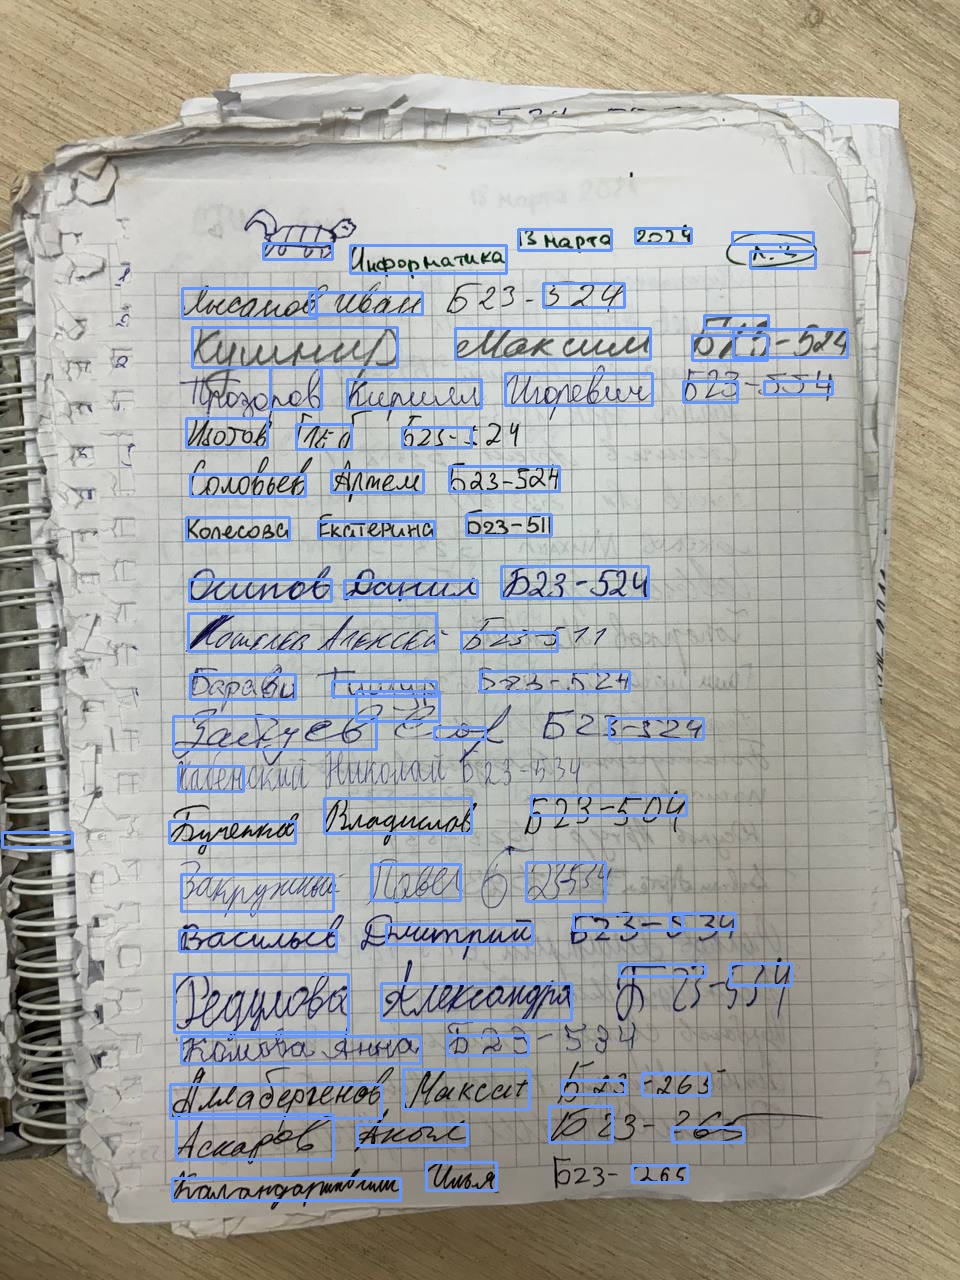 Информатика 13 марта 2024 л.3
Иван Б23-524
Кушнир Максим Б23-524
Прозоров Кирилл Игоревич Б23-554
Изотов Глеб Б23-524
Соловьев Артем Б23-524
Колесова Екатерина Б23-511
Осипов Данил Б23-524
Алексей Б23-511
Тимур Б23-524
Б23-524
Николай Б23-534
Бученков Владислав Б23-504
Закружный Павел Б23-534
Васильев Дмитрий Б23-534
Федулова Александра Б23-534
Комова Анна Б23-534
Аллабергенов Максат Б23-265
Аскаров Акыл Б23-265
Илья Б23-265